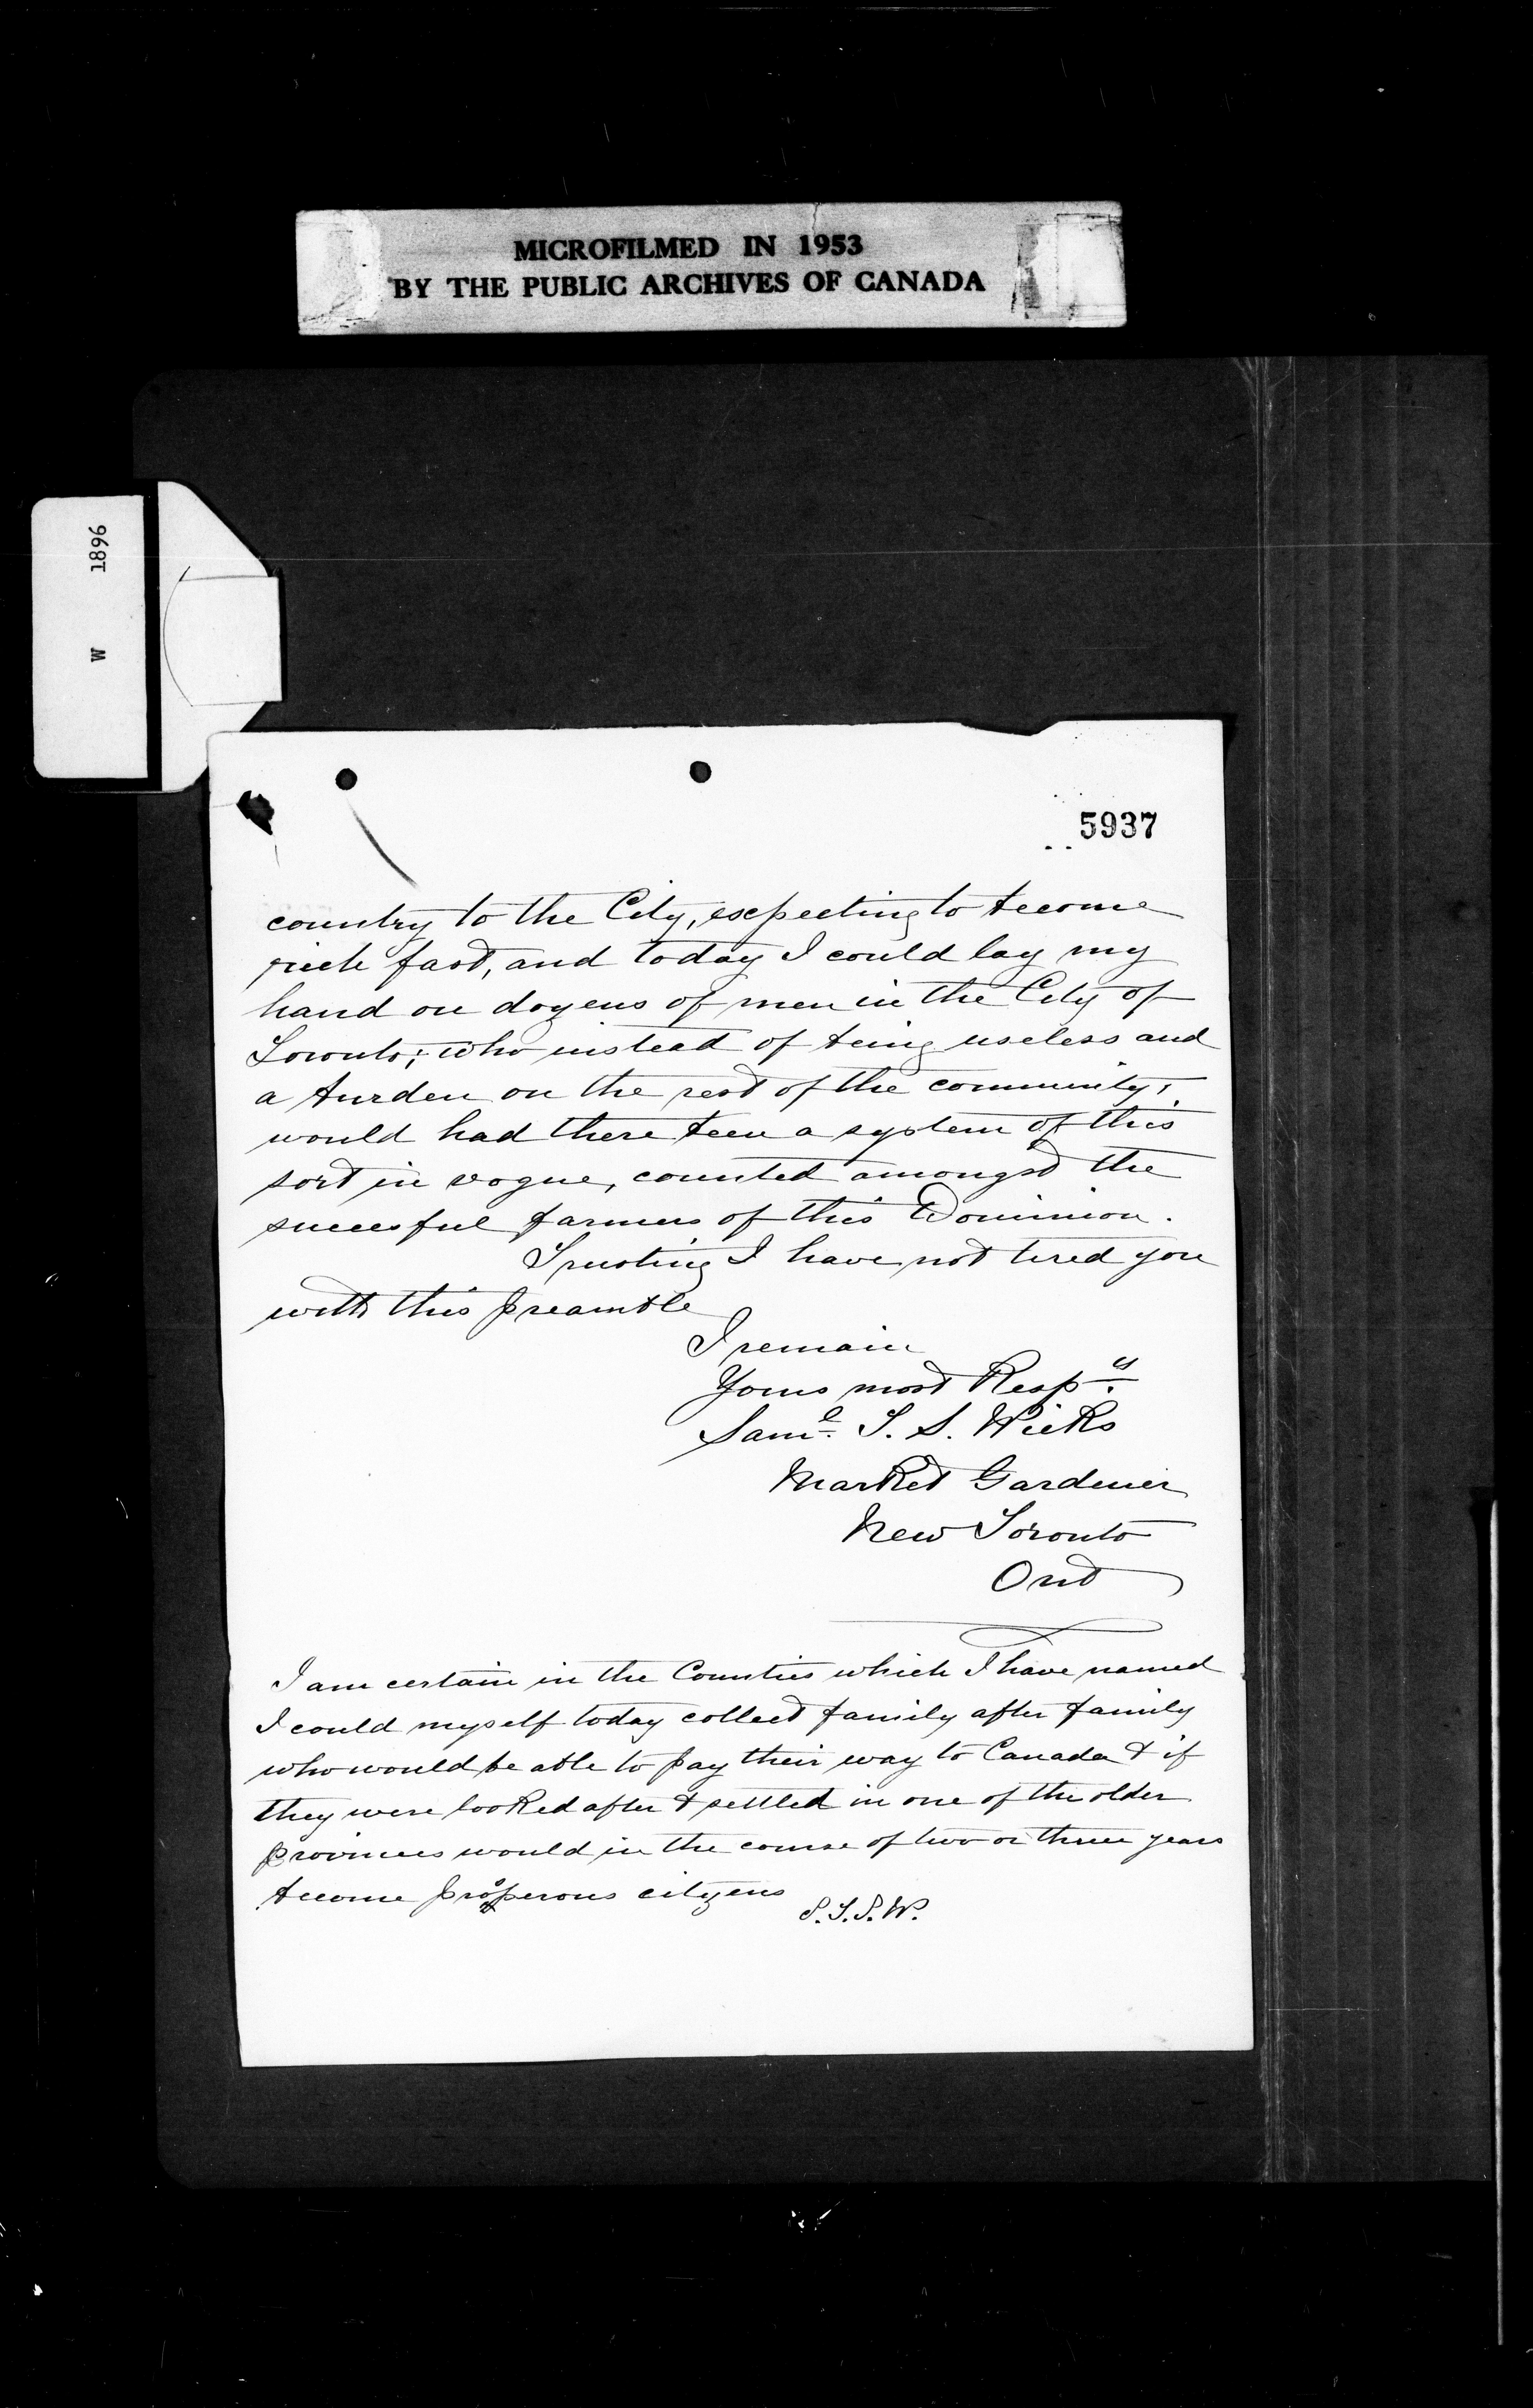 MICROFILMED IN 1953
BY THE PUBLIC ARCHIVES OF CANADA
W 1896
5937
country to the City, expecting to become
rich fast, and today I could lay my
hand on dozens of men in the City of
Toronto; who instead of being useless and
a burden on the rest of the community,
would had there been a system of this
sort in vogue, counted amongst the
succesful farmers of this Dominion.
Trusting I have not tired you
with this preamble
I remain
Yours most Respy.
Saml. T. S. Wicks
Market Gardener
New Toronto
Ont
I am certain in the Counties which I have named
I could myself today collect family after family
who would be able to pay their way to Canada & if
they were looked after & settled in one of the older
Provinces would in the course of two or three years
become prosperous citizens
S.T.S.W.